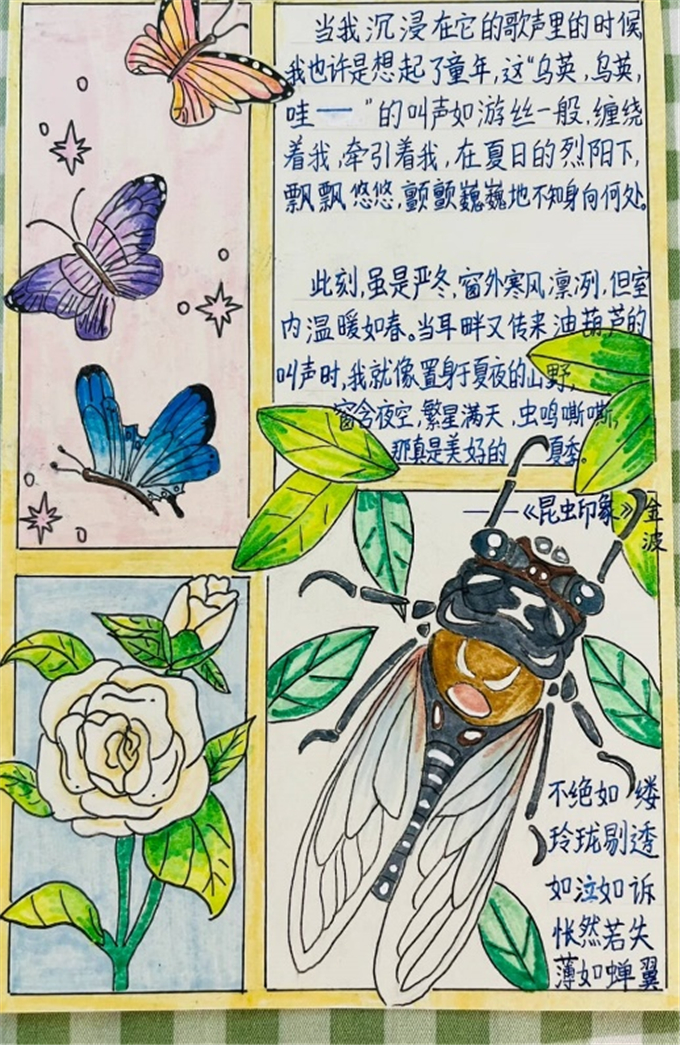 当我沉浸在它的歌声里的时候,
我也许是想起了童年,这“乌英,乌英,
哇——”的叫声如游丝一般,缠绕
着我,牵引着我,在夏日的烈阳下,
飘飘悠悠,颤颤巍巍地不知身向何处。
此刻,虽是严冬,窗外寒风凛冽,但室
内温暖如春。当耳畔又传来油葫芦的
叫声时,我就像置身于夏夜的山野,
窗含夜空,繁星满天,虫鸣嘶嘶,
那真是美好的夏季。
——《昆虫印象》金波
不绝如缕
玲珑剔透
如泣如诉
怅然若失
薄如蝉翼